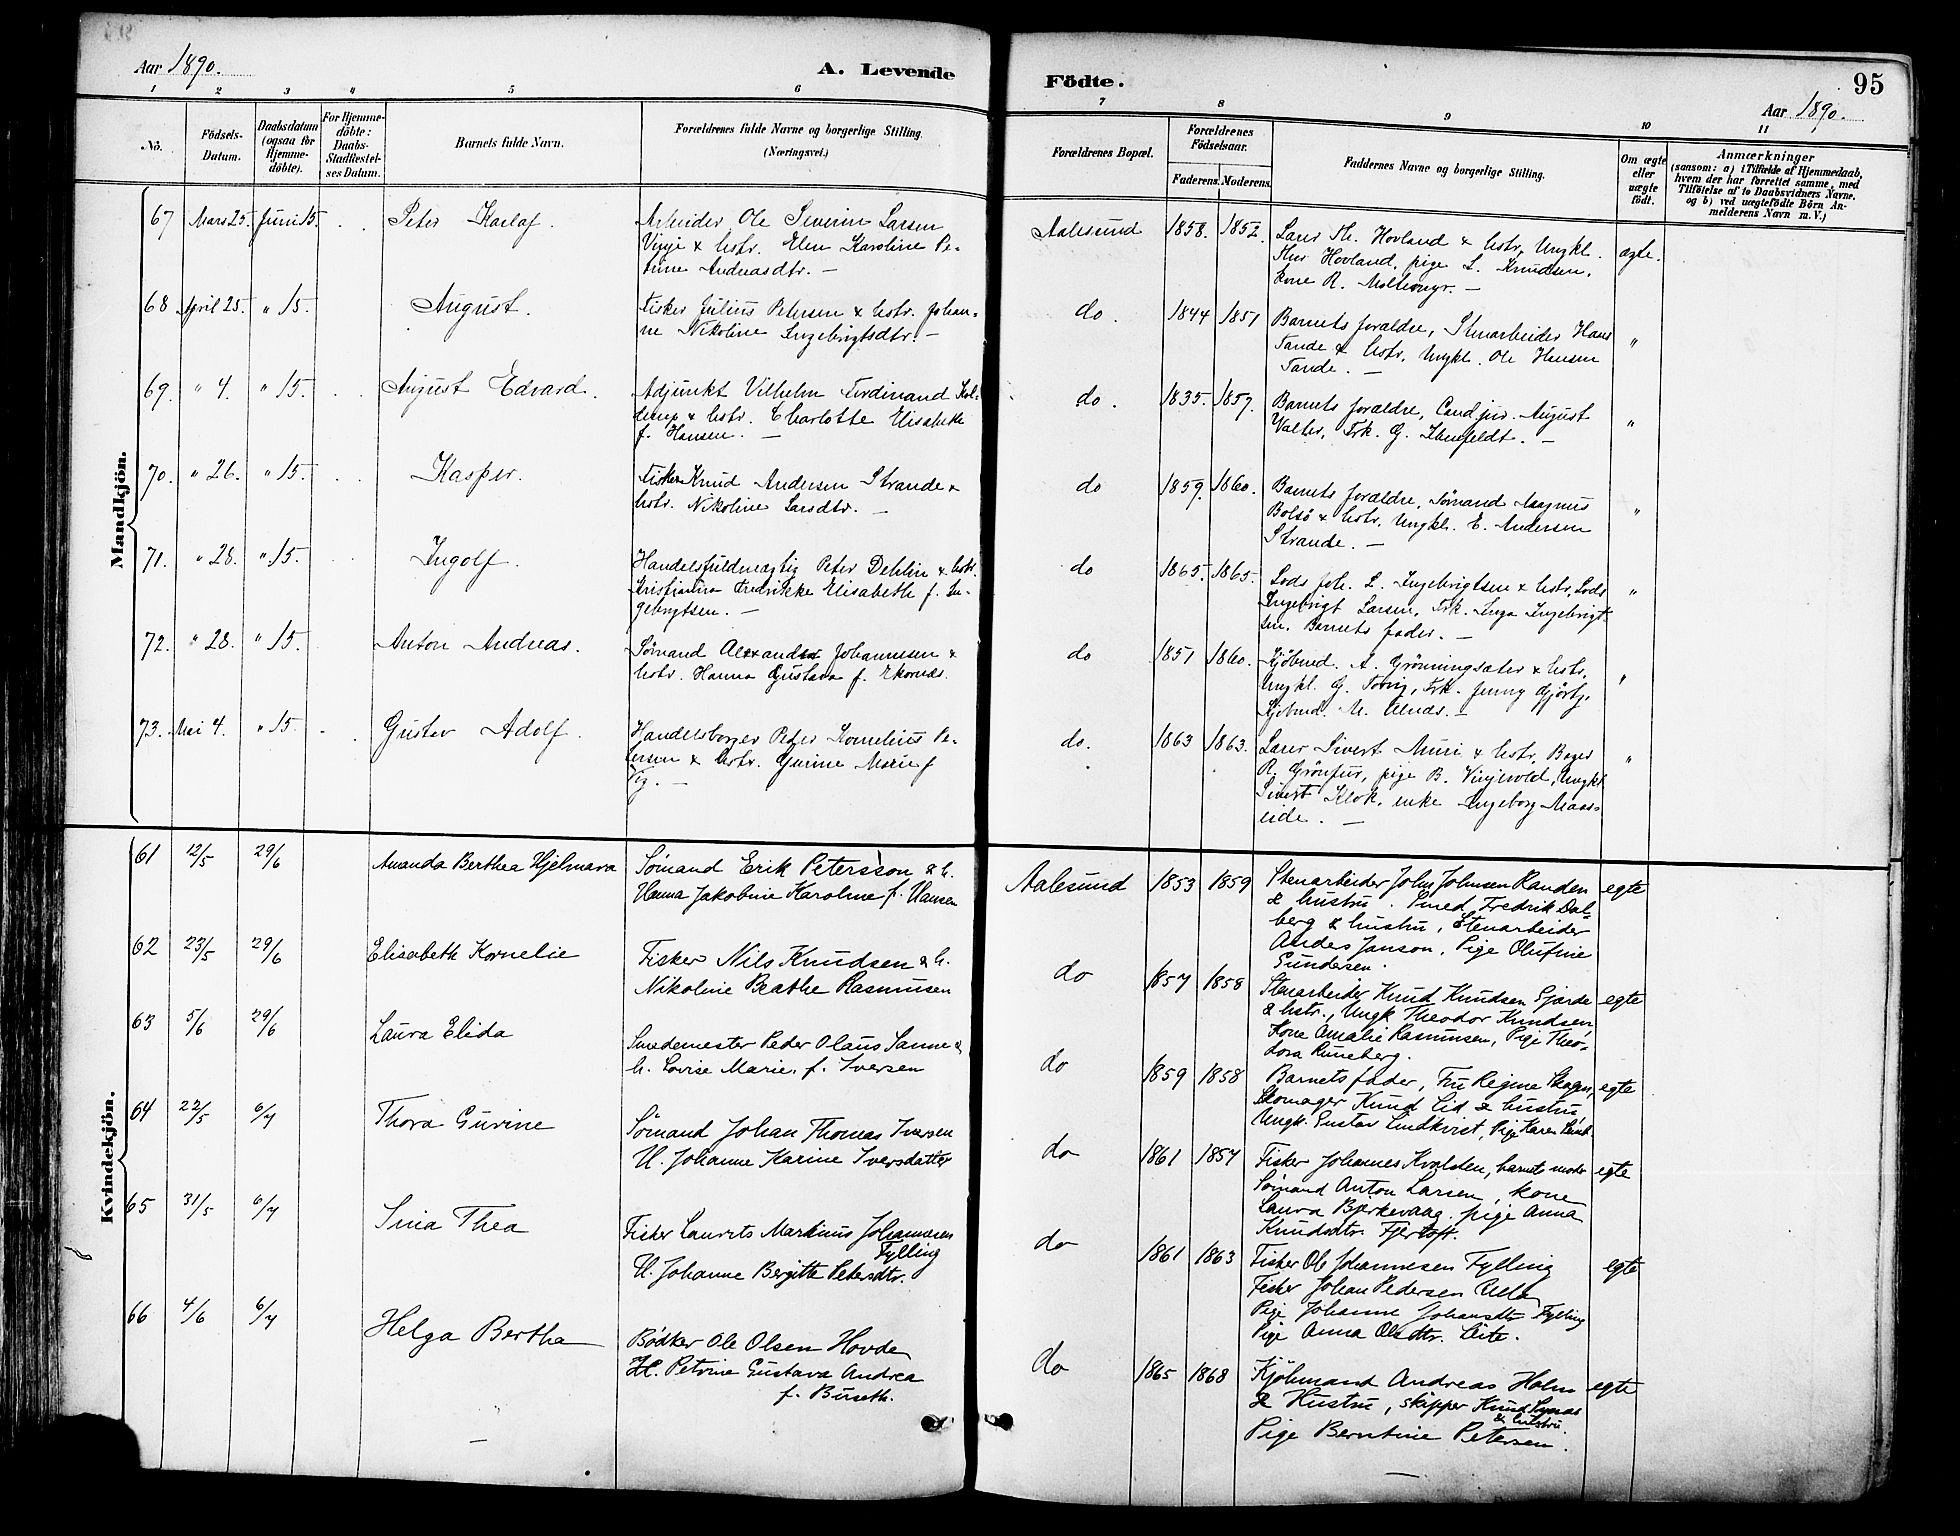 Aar 1890.
A. Levende
1 2 3 4 5 6
No.
Födsels-
Datum.
Daabsdatum
(ogsaa for
Hjemme-
döbte).
For Hjemme-
döbte:
Daabs-
Stadfæstel-
ses Datum.
Barnets fulde Navn.
Forældrenes fulde Navne og borgerlige Stilling.
(Næringsvei.)
Mandkjön.
67 Mars 25. Juni 15. Peter Karlaf.
Arbeider Ole Severin Larsen
Vinje & hstr. Elen Karoline Pe-
trine Andreasdtr. —
68 April 25. " 15. August.
Fisker Julius Petersen & hstr. Johan-
ne Nikoline Ingebrigtsdtr. —
69. " 4. " 15. August Edvard.
Adjunkt Vilhelm Ferdinand
& hstr. Charlotte Elisabeth
f. Hansen. —
70. " 26. " 15. Kasper.
Fisker Knud Andersen Strande &
hstr. Nikoline Larsdtr. —
71. " 28. " 15. Ingolf.
Handelsfuldmægtig Peter Dehlin & hstr.
Kristianna Fredrikke Elisabeth f. In-
gebrigtsen. —
72. " 28. " 15. Anton Andreas.
Sømand Alexander Johannesen &
hstr. Hanna Gustava f. Ekornæs.
73. Mai 4. " 15. Gustav Adolf.
Handelsborger Peder Kornelius Pe-
tersen & hstr. Gurine Marie f
Vig. —
Kvindekjön.
61 12/5 29/6 Amanda Berthea Hjelmara
Sømand Erik Petersson & h.
Hanna Jakobine Karoline f. Hansen
62 23/5 29/6 Elisabeth Kornelie
Fisker Nils Knudsen & h.
Nikoline Beathe Rasmusen
63 5/6 29/6 Laura Elida
Smedemester Peder Olaus Sanne &
h. Lovise Marie. f. Iversen
64 22/5 6/7 Thora Gurine
Sømand Johan Thomas Iversen
H. Johanne Karine Iversdatter
65 31/5 6/7 Sina Thea
Fisker Laurits Martinus Johannesen
Fylling
H. Johanne Bergitte Petersdtr.
66 4/6 6/7 Helga Bertha
Bødker Ole Olsen Hovde
H. Petrine Gustava Andrea
f. Buseth.
—
Födte.
95
Aar 1890.
7 8 9 10 11
Forældrenes Bopæl.
Forældrenes
Födselsaar.
Faderens. Moderens.
Faddernes Navne og borgerlige Stilling.
Om ægte
eller
uægte
födt.
Anmærkninger
(sansom: a) i Tilfælde af Hjemmedaab,
hvem der har forrettet samme, med
Tilföielse af to Daabsvidners Navne.
og b) ved uægtefödte Börn An-
melderens Navn m. V.)
Aalesund 1858. 1852.
Lars Th. Hovland & hstr, Ungkl. ægte.
Hovland, pige L. Knudsen,
kone R. —
do. 1844 1851
Barnets forældre, Stenarbeider Hans "
Tande & hstr. Ungkl. Ole Hensen
Tande. —
do. 1835. 1857.
Barnets forældre, Cand. jur. August "
Valter, Frk. G. —
do 1859. 1860.
Barnets forældre, Sømand Magnus "
Bolsø & hstr, Ungkl. E. Andersen
Strande. —
do 1865. 1865.
Lods Joh. L. Ingebrigtsen & hstr, Lods "
Ingebrigt Larsen, Frk. Inga Ingebrigt-
sen. Barnets fader. —
do 1851 1860.
Kjøbmd. A. Grönningsæter & hstr, "
Ungkl. G. Frk. Jenny Gjörtz,
Kjøbmd. M. —
do. 1863 1863.
Larer Sivert Muri & hstr, Bager "
R. pige B. Vinjevold, Ungkl
Sivert Klok, enke Ingeborg
—
Aalesund 1853 1859
Stenarbeider John Johnsen Randen egte
& hustru. Smed Fredrik Dal-
berg & hustru, Stenarbeider
Andes Janson, Pige Olufine
Gundersen.
do 1857 1858
Stenarbeider Knud Knudsen Gjørde egte
& hstr., Ungk Theodor Knudsen,
Kone Amalie Rasmusen, Pige Theo-
dora Runeberg.
do 1859 1858
Barnets fader, Fru Regine Skogn, egte
Skomager Knud Lid & hustru
Ungk. Gustav Lindkvist, Pige Karen
do 1861 1857
Fisker Johannes Kvalsten, barnets moder egte
Sømand Anton Larsen, kone
Laura Bjørkevaag. pige Anna
Knudsdtr. Fjertoft.
do 1861 1863
Fisker Ole Johannesen Fylling egte
Fisker Johan Pedersen
Pige Johanne Johansdtr Fylling
Pige Anna Olsdtr. Leite.
do 1865 1868
Kjöbmand Andreas Holm egte
& Hustru, skipper Knud
& hustru
Pige Berntine Petersen.
—